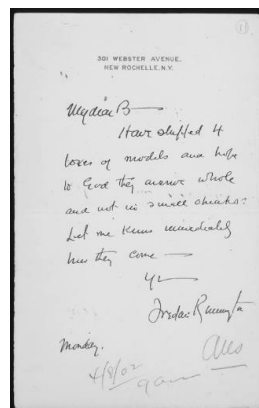 301 WEBSTER AVENUE,
NEW ROCHELLE, N.Y.
My dear B—
Have shipped 4
boxes of models and hope
to God they arrive whole
and not in small chunks.
Let me know immediately
how they come —
Frederic Remington
Monday.
4/8/02
Ans